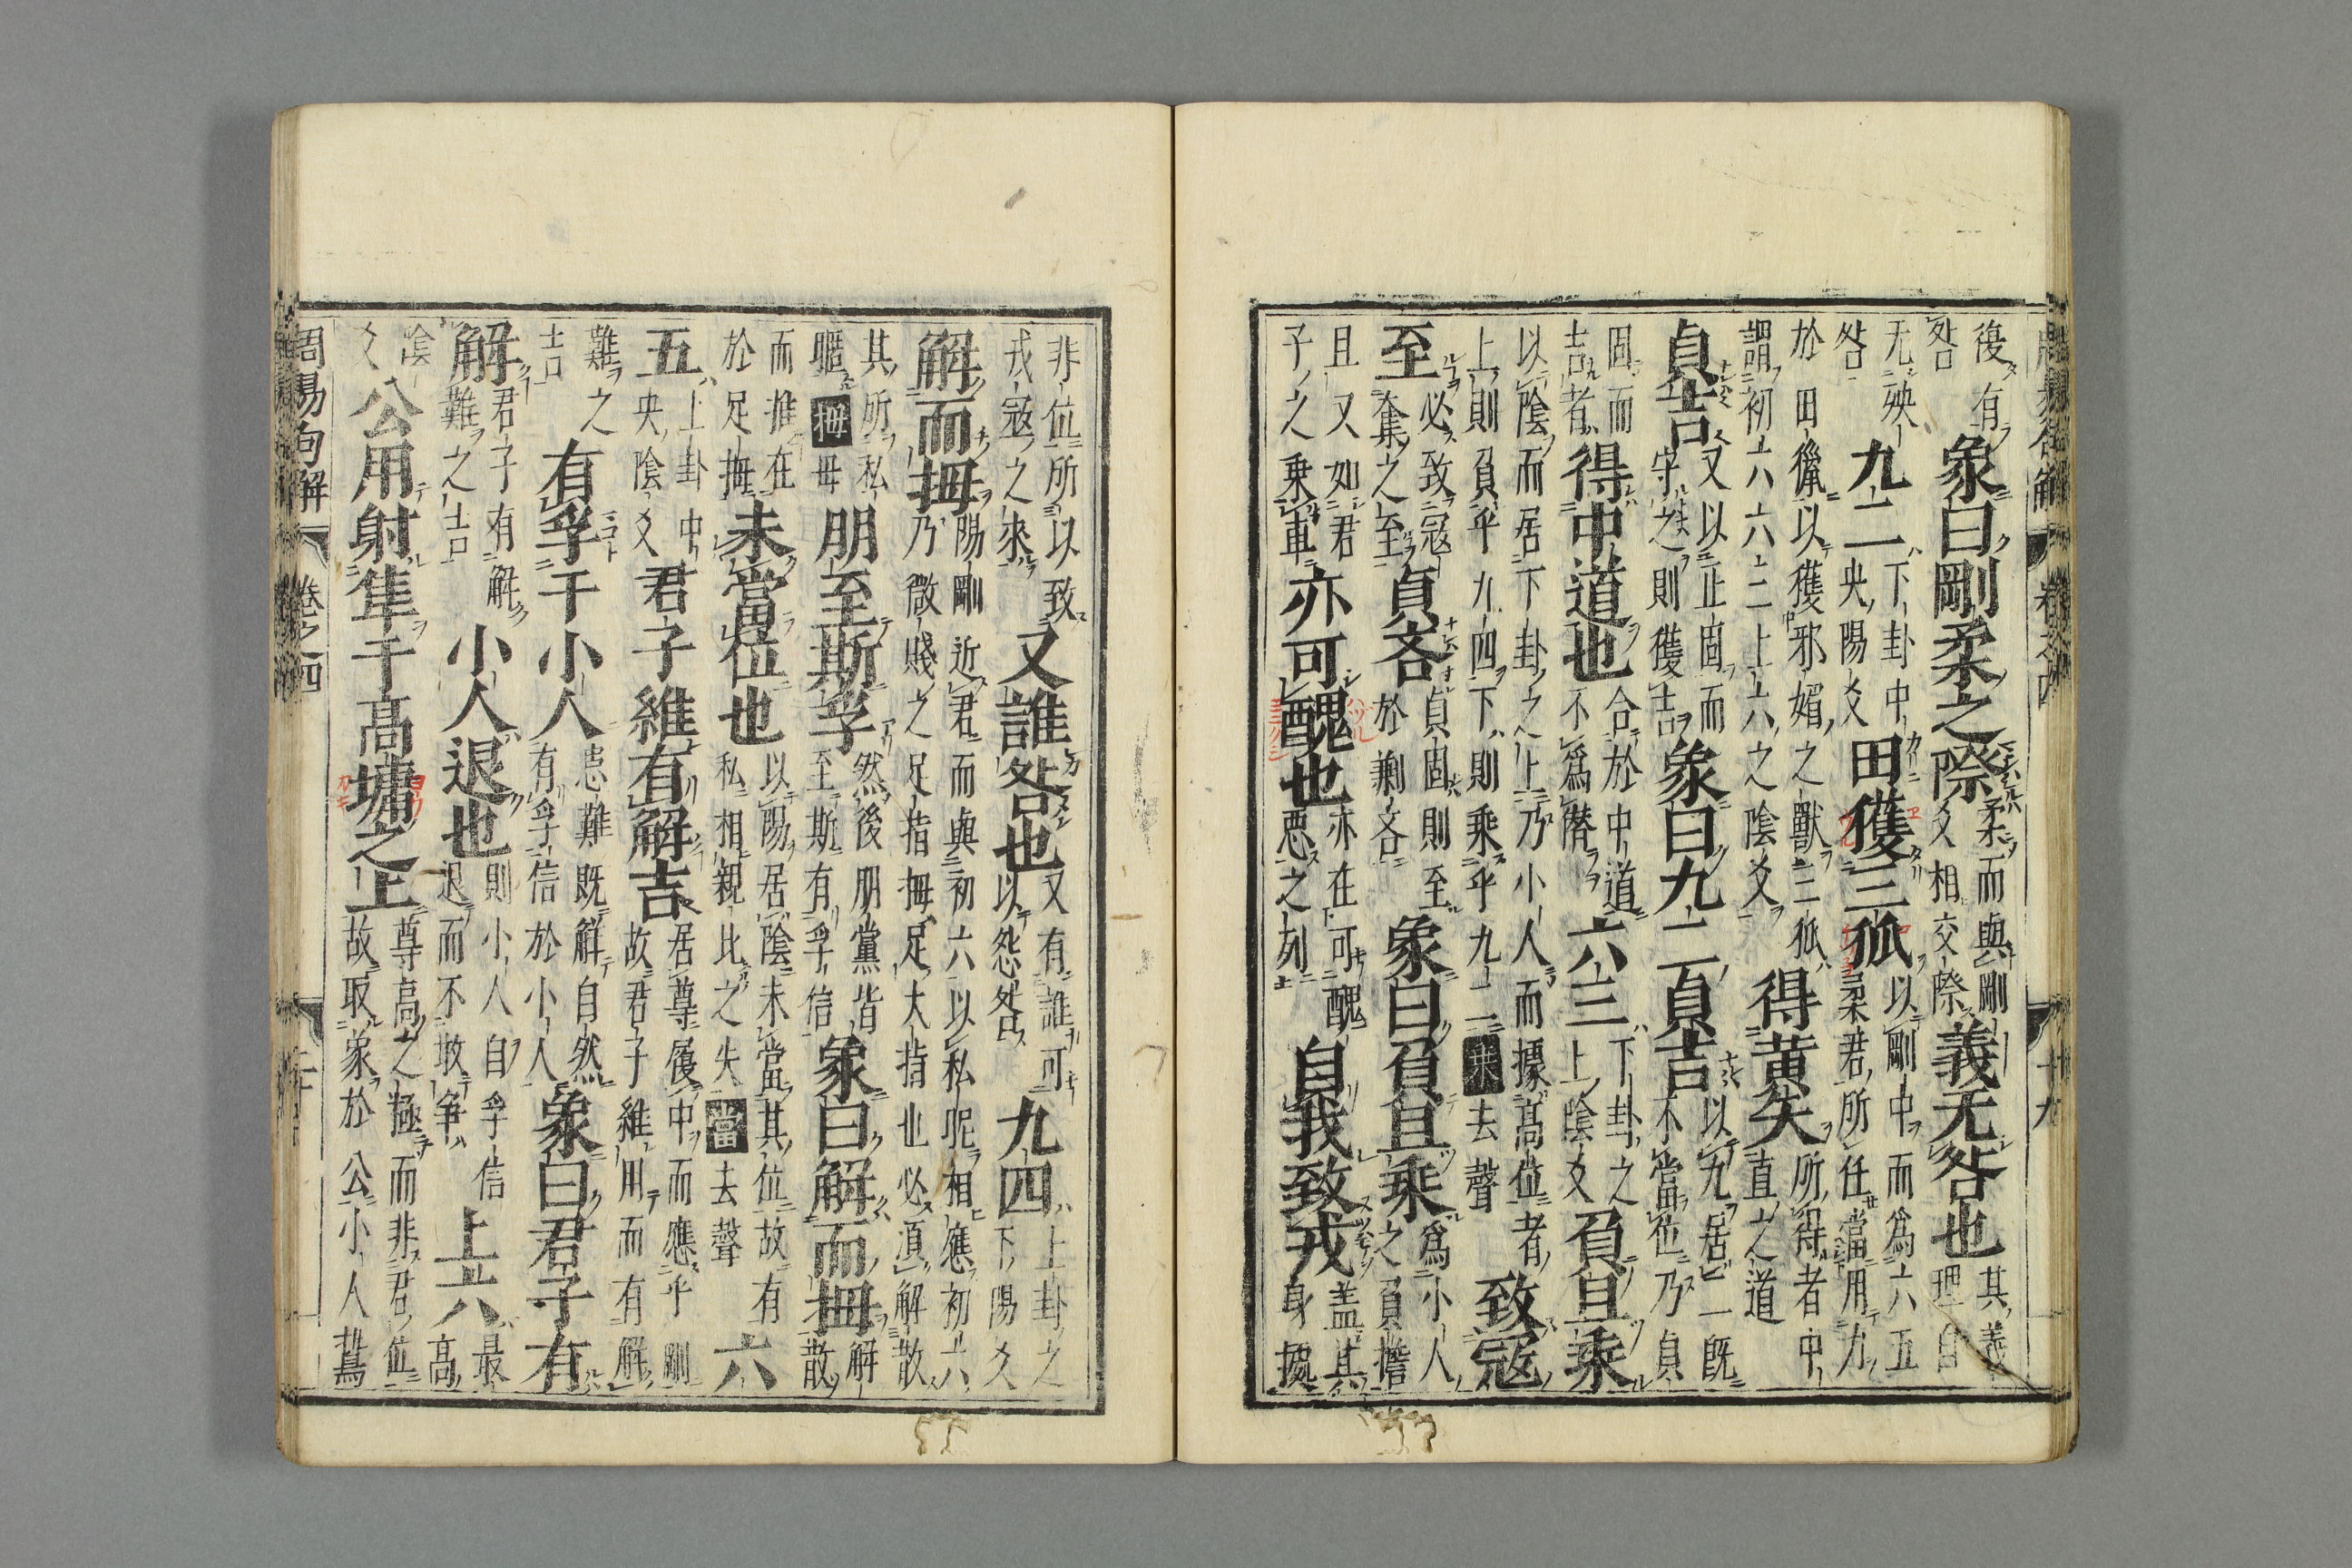 周易句解 卷之四 十九
復有咎 象曰剛柔之際 柔而與剛爻相交際 義无咎也 其義理自
无殃咎 九二 下卦中央陽爻 田獲三狐 以剛中而爲六五柔君所任當用力
於田獵以獲邪媚之獸三狐謂初六六二上六之陰爻 得黄矢 所得者中直之道
貞吉 又以正固而守之則獲吉 象曰九二貞吉 以九居二既不當位乃貞
固而吉者 得中道也 合於中道不爲僭 六三 下卦之上陰爻 負且乘
以陰而居下卦之上乃小人而據髙位者上則負乎九四下則乘乎九二乘去聲 致寇
至 必致寇奪之至 貞吝 貞固則至於剰吝 象曰負且乘 爲小人之負擔
且又如君子之乗車 亦可醜也 亦在可醜惡之列 自我致戎 盖其身據
非位所以致戎寇之來 又誰咎也 又有誰可以怨咎 九四 上卦之下陽爻
解而拇 陽剛近君而與初六以私昵相應初六乃微賤之足指拇足大指也必須解散
其所私昵拇毋 朋至斯孚 然後朋黨皆至斯有孚信 象曰解而拇 解散
而推在於足拇 未當位也 以陽居陰未當其位故有私相親比之失當去聲 六
五 上卦中央陰爻 君子維有解吉 居尊履中而應乎剛故君子維用而有解
難之吉 有孚于小人 患難既解自然有孚信於小人 象曰君子有
解 君子有解難之吉 小人退也 則小人自孚信退而不敢争 上六 最髙
陰爻 公用射隼于髙墉之上 尊髙之極而非君位故取象於公小人鷙
周易句解 卷之四 二十